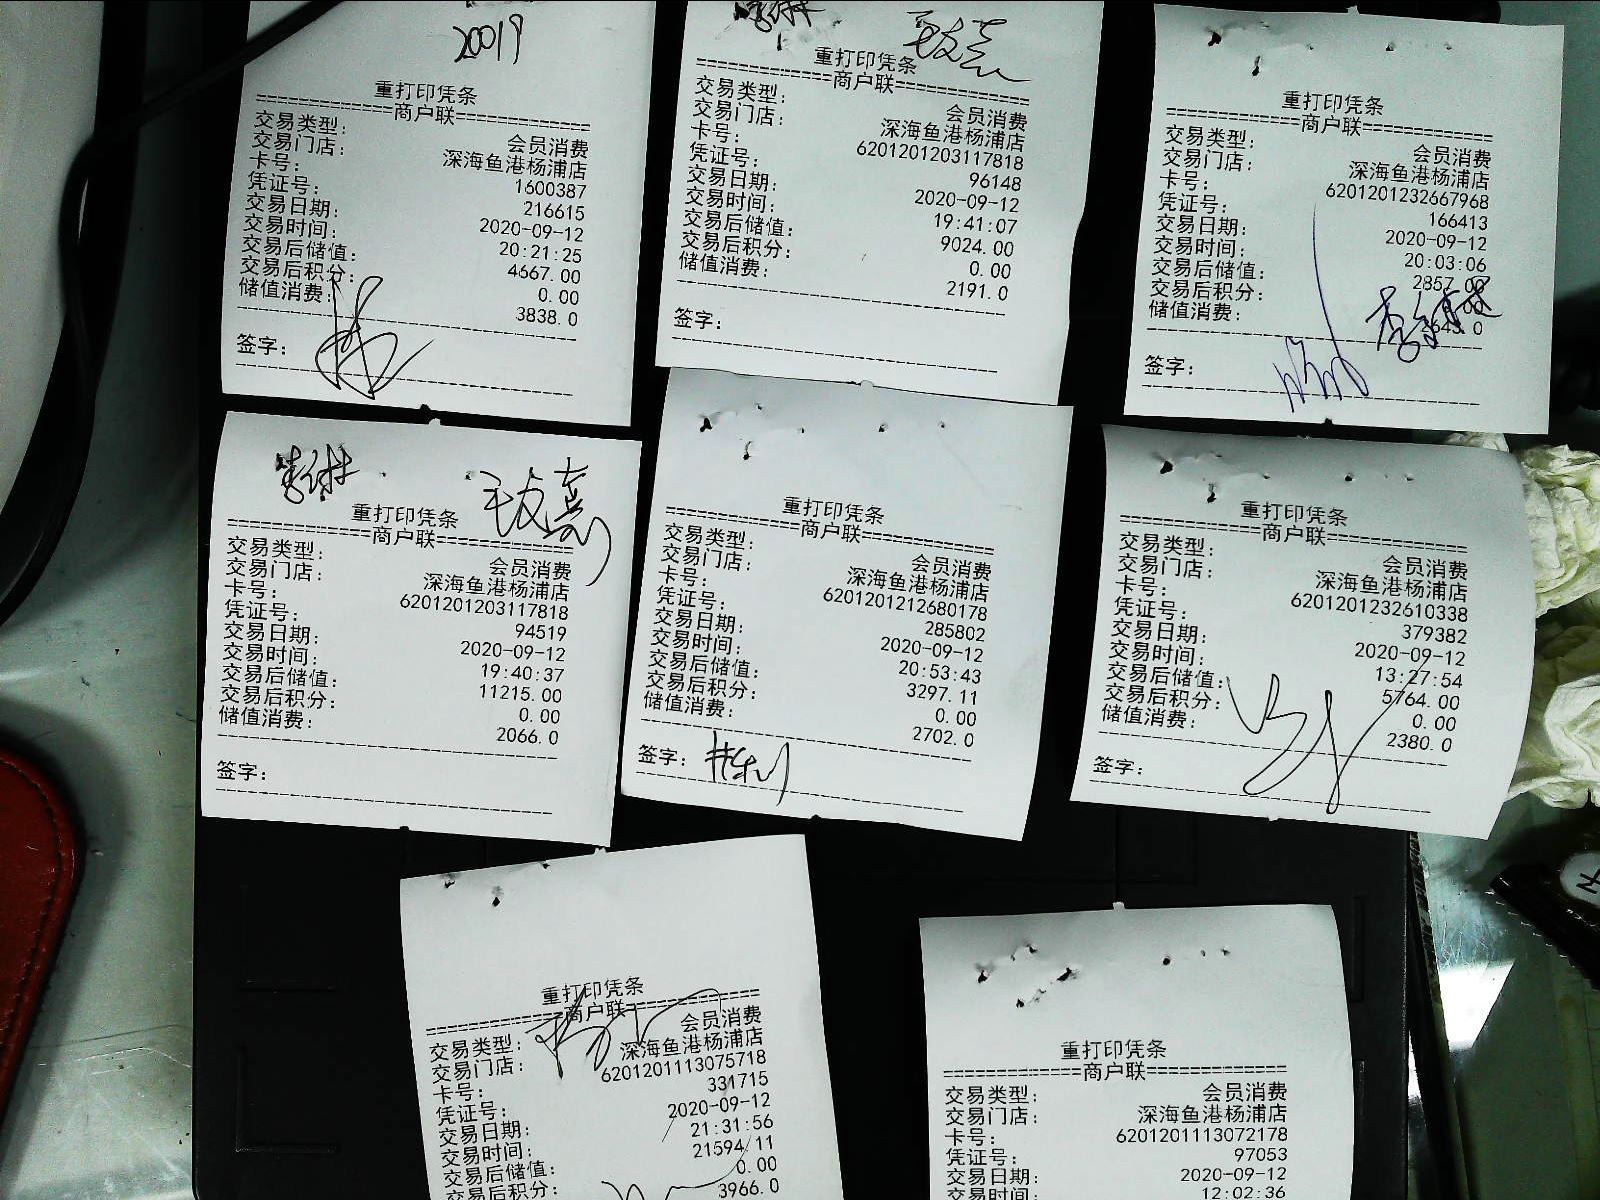 20019
重打印凭条
=============商户联=============
交易类型: 会员消费
交易门店: 深海鱼港杨浦店
卡号: 1600387
凭证号: 216615
交易日期: 2020-09-12
交易时间: 20:21:25
交易后储值: 4667.00
交易后积分: 0.00
储值消费: 3838.0
签字:
毛友嘉
重打印凭条
=============商户联=============
交易类型: 会员消费
交易门店: 深海鱼港杨浦店
卡号: 6201201203117818
凭证号: 96148
交易日期: 2020-09-12
交易时间: 19:41:07
交易后储值: 9024.00
交易后积分: 0.00
储值消费: 2191.0
签字:
重打印凭条
=============商户联=============
交易类型: 会员消费
交易门店: 深海鱼港杨浦店
卡号: 6201201232667968
凭证号: 166413
交易日期: 2020-09-12
交易时间: 20:03:06
交易后储值: 2857.00
交易后积分:
储值消费:
签字:
毛友嘉
重打印凭条
=============商户联=============
交易类型: 会员消费
交易门店: 深海鱼港杨浦店
卡号: 6201201203117818
凭证号: 94519
交易日期: 2020-09-12
交易时间: 19:40:37
交易后储值: 11215.00
交易后积分: 0.00
储值消费: 2066.0
签字:
重打印凭条
=============商户联=============
交易类型: 会员消费
交易门店: 深海鱼港杨浦店
卡号: 6201201212680178
凭证号: 285802
交易日期: 2020-09-12
交易时间: 20:53:43
交易后储值: 3297.11
交易后积分: 0.00
储值消费: 2702.0
签字:
重打印凭条
=============商户联=============
交易类型: 会员消费
交易门店: 深海鱼港杨浦店
卡号: 6201201232610338
凭证号: 379382
交易日期: 2020-09-12
交易时间: 13:27:54
交易后储值: 5764.00
交易后积分: 0.00
储值消费: 2380.0
签字:
重打印凭条
=============商户联=============
交易类型: 会员消费
交易门店: 深海鱼港杨浦店
卡号: 6201201113075718
凭证号: 331715
交易日期: 2020-09-12
交易时间: 21:31:56
交易后储值: 21594.11
交易后积分: 0.00
3966.0
重打印凭条
=============商户联=============
交易类型: 会员消费
交易门店: 深海鱼港杨浦店
卡号: 6201201113072178
凭证号: 97053
交易日期: 2020-09-12
交易时间: 12:02:36